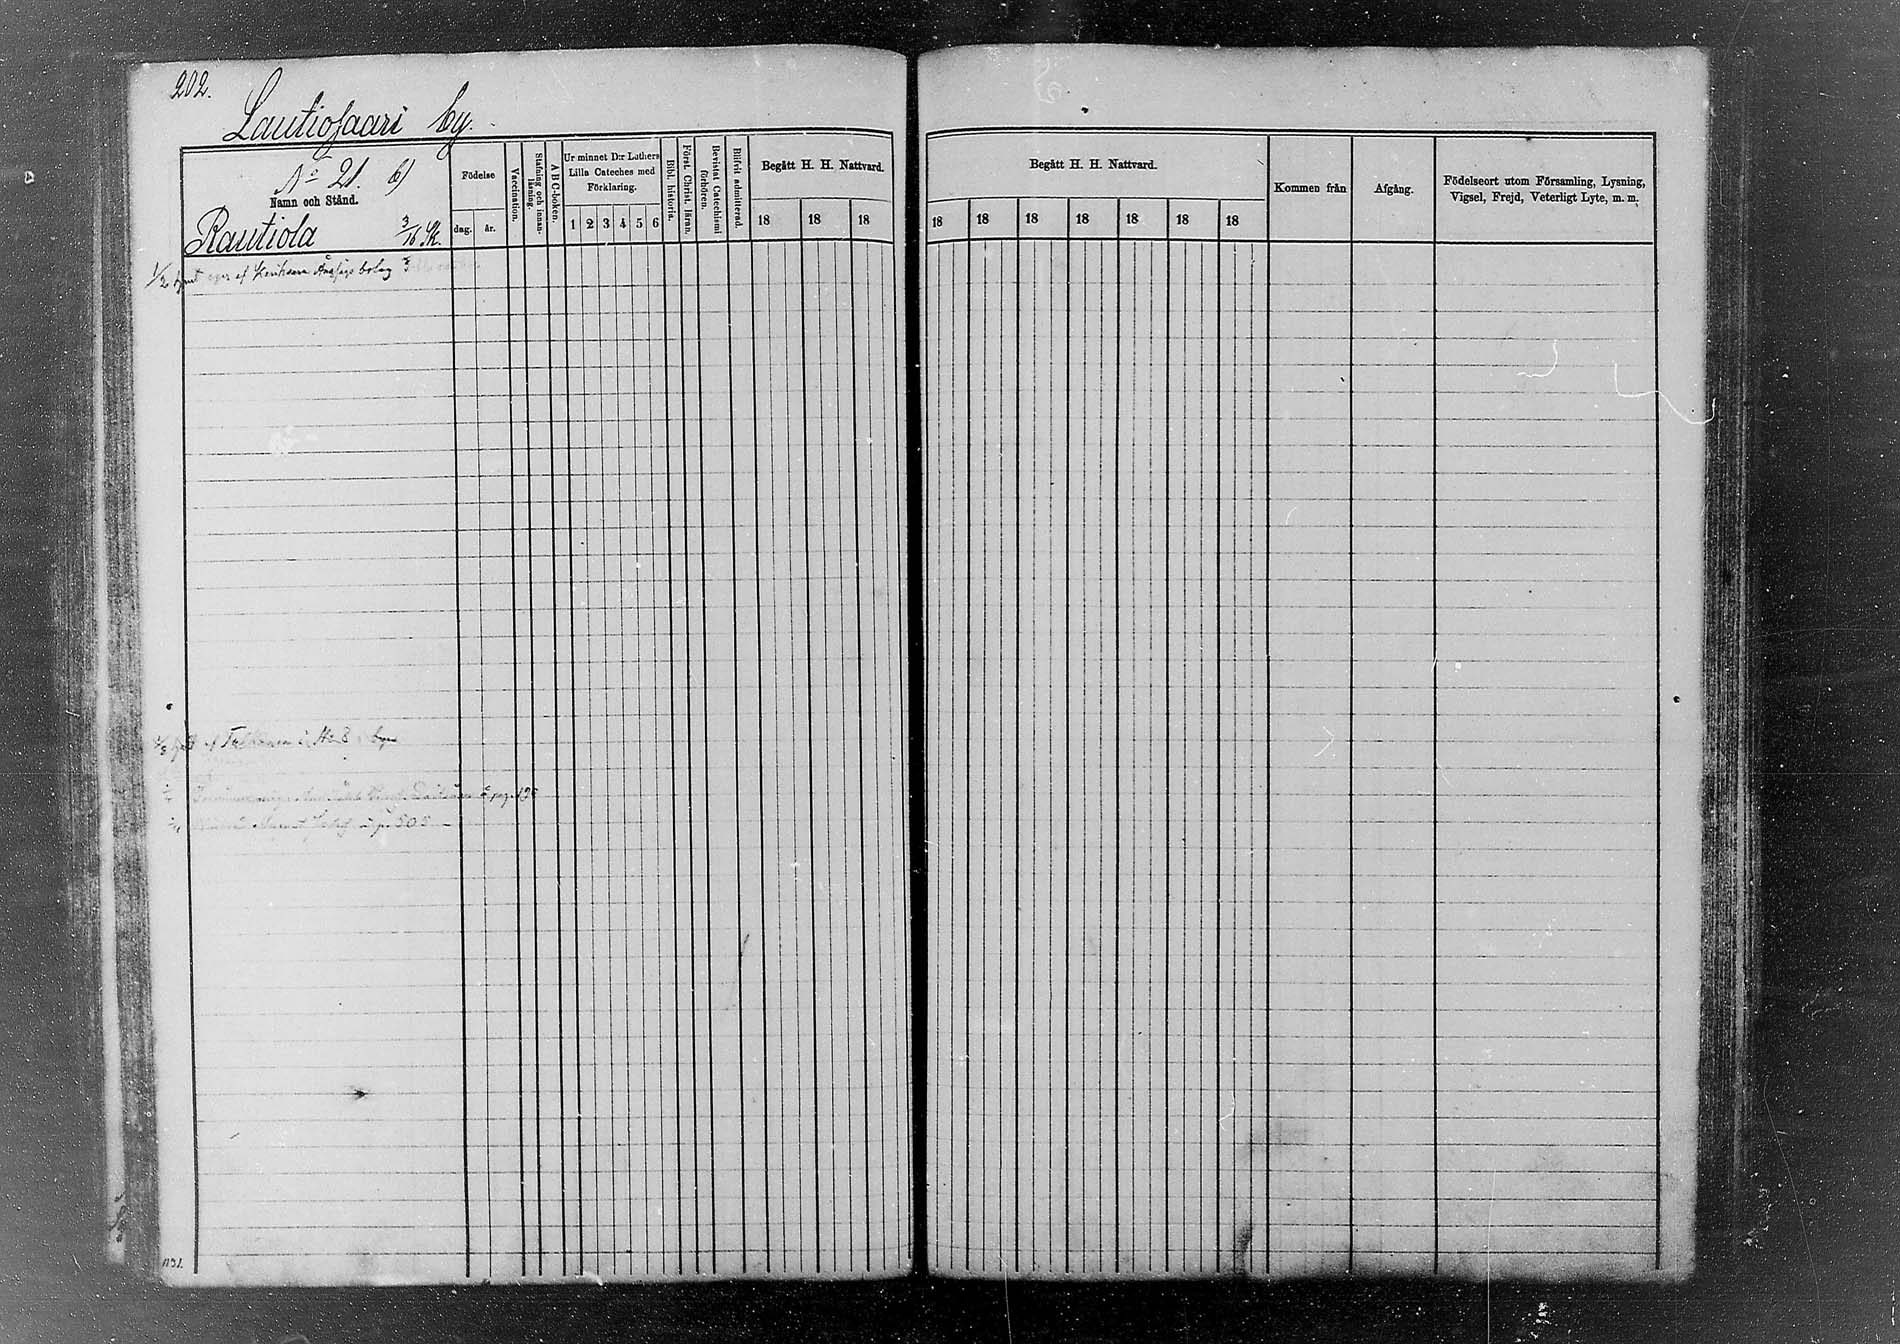 202.
Lautiosaari by.
No 21. b)
Namn och Stånd.
Rautiola 3/16 Mt.
Födelse
dag. år.
Vaccination.
Stafning och innan-
läsning.
A B C-boken.
Ur minnet D:r Luthers
Lilla Cateches med
Förklaring.
1 2 3 4 5 6
Bibl. historia.
Först. Christ. läran.
Bevistat Catechismi
förhören.
Blifvit admitterad.
Begått H. H. Nattvard.
18 18 18
Begått H. H. Nattvard.
18 18 18 18 18 18 18
Kommen från
Afgång.
Födelseort utom Församling, Lysning,
Vigsel, Frejd, Veterligt Lyte, m. m.
1/2 af bolag
af i No 8
pag. 198
p. 505